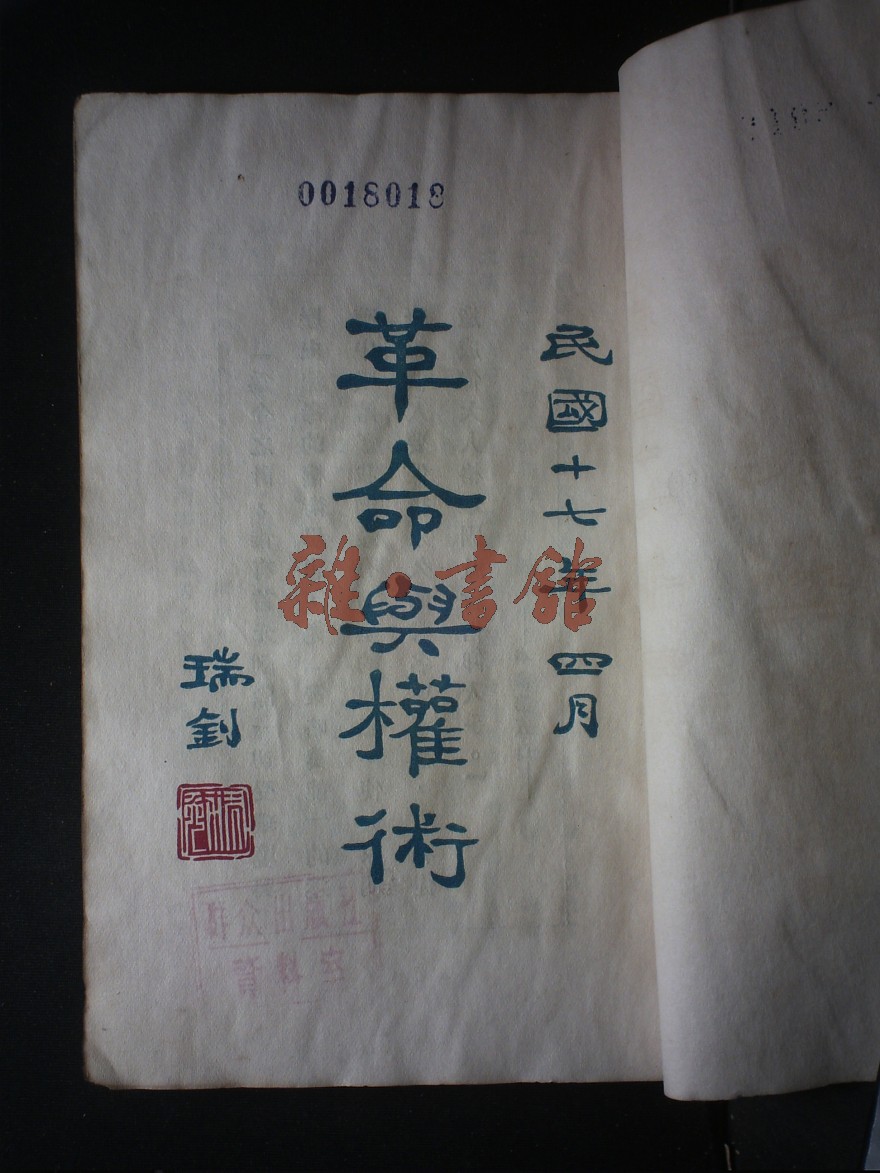 0018018
民國十七年四月
革命與權術
瑞釗
雜·書館